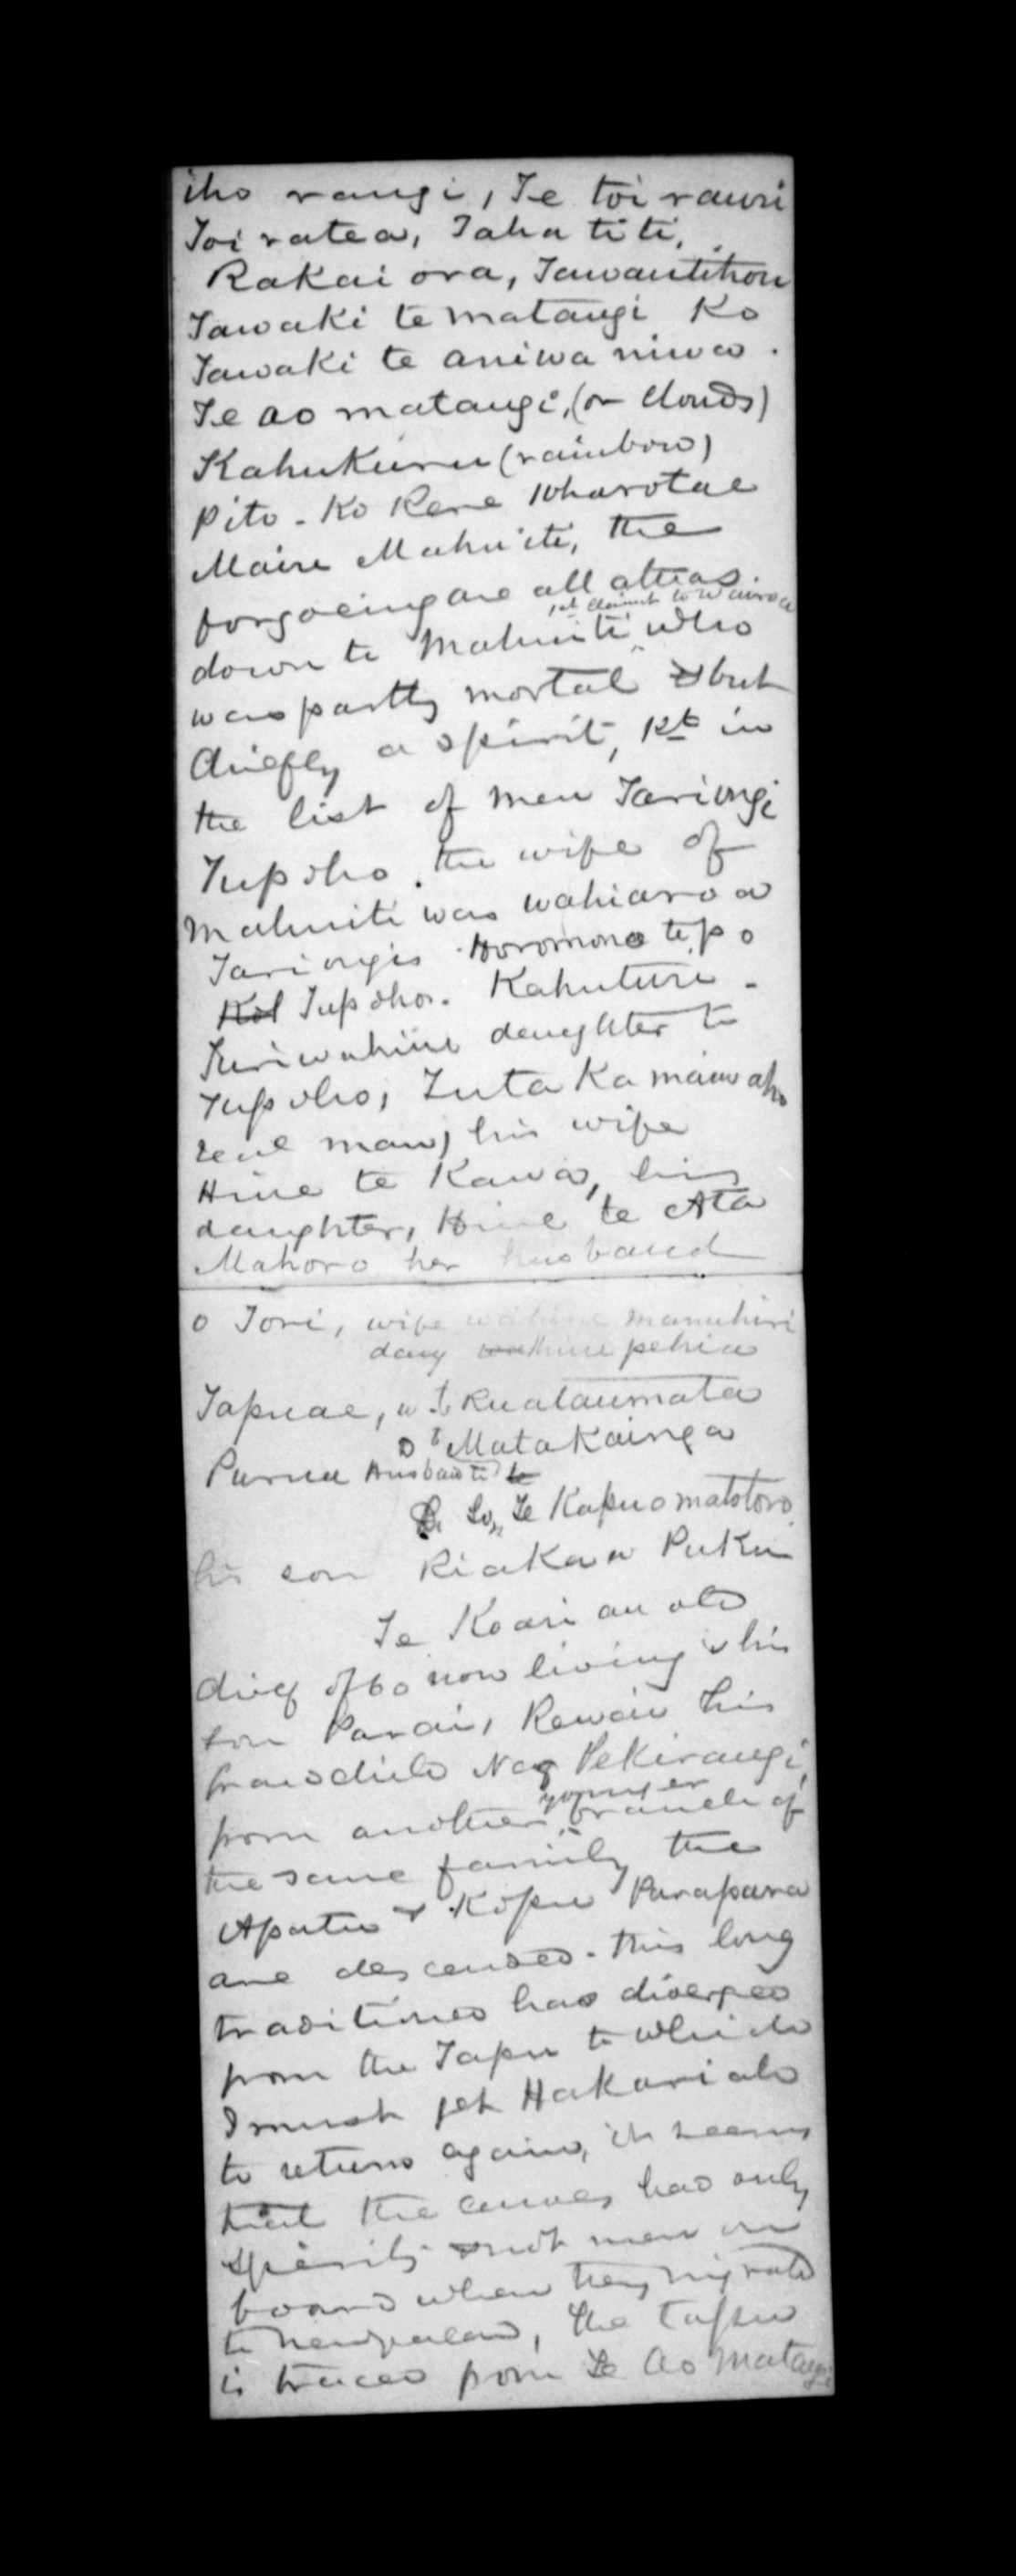 iho rangi, Te toi rauri
Toi ratea, Taha titi,
Rakai ora, Tawantihou
Tawaki te matangi Ko
Tawaki te aniwa niwa.
Te ao matangi, (or Clouds)
Kahukuru (rainbow)
Pito - Ko Rere Wharotae
Maire Mahuiti, the
forgoeing are all atuas.
1st claimt to Wairoa
down to Mahuiti who
was partly mortal but
chiefly a spirit, 1st in
the list of men Tariongi
Tupoho. the wife of
Mahuiti was wahiaroa
Tariongis Horomona te po
Kol Tupohos. Kahuturi -
Turiwahine daughter to
Tupoho, Tuta Kamaiwaho
real man, his wife
Hine te Kawa, his
daughter, Hine te Ata
Mahoro her husband
o Tori, wife wahine manuhiri
daug hine pehia
Tapuae, w to Ruataumata
D to Matakainga
Purua Husband to
Son Te Kapuomatotoro
his son Riakawa Puku
Te Koari an old
chief of 60 now living & his
son Parai, Rewai his
grandchild Nag Pekirangi,
younger
from another branch of
the same family the
Apatu & Kopu Parapara
are descended. this long
traditiones has diverged
from the Tapu to which
I must get Hakariah
to return again, it seems
that the canoes had only
spirits not men on
board when they migrated
to newzealand, the tapu
is traced from Te Ao Matangi